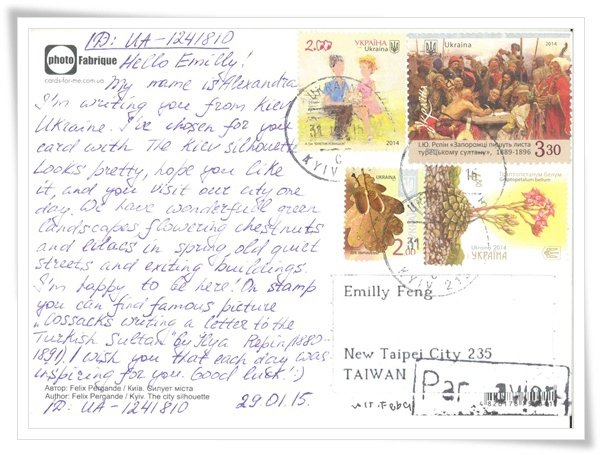 ID: UA-1241810
photo Fabrique
cards-for-me.com.ua
Hello Emilly!
My name is Alexandra
I'm writing you from Kiev
Ukraine. I've chosen for you
card with The Kiev silhouette
Looks pretty, hope you like
it, and you visit our city one
day. We have wonderfull green
landscapes, flowering chestnuts
and lilacs in spring, old quiet
streets and exiting buildings.
I'm happy to be here! On stamp
you can find famous picture
„Cossacks writing a letter to the
Turkish Sultan" by Ilya Repin (1880-
1891). I wish you that each day was
inspiring for you. Good luck! :)
Автор: Felix Pergande / Київ. Силует міста
Author: Felix Pergande / Kyiv. The city silhouette
ID: UA-1241810
29.01.15.
2.00
УКРАЇНА
Ukraine
2014
Ukraine
2014
І.Ю. Рєпін «Запорожці пишуть листа
турецькому султану», 1889-1896
3.30
УКРАЇНА
2.00
Ukraine 2014
УКРАЇНА
KYIV
KYIV
Emilly Feng
New Taipei City 235
TAIWAN
Par avion